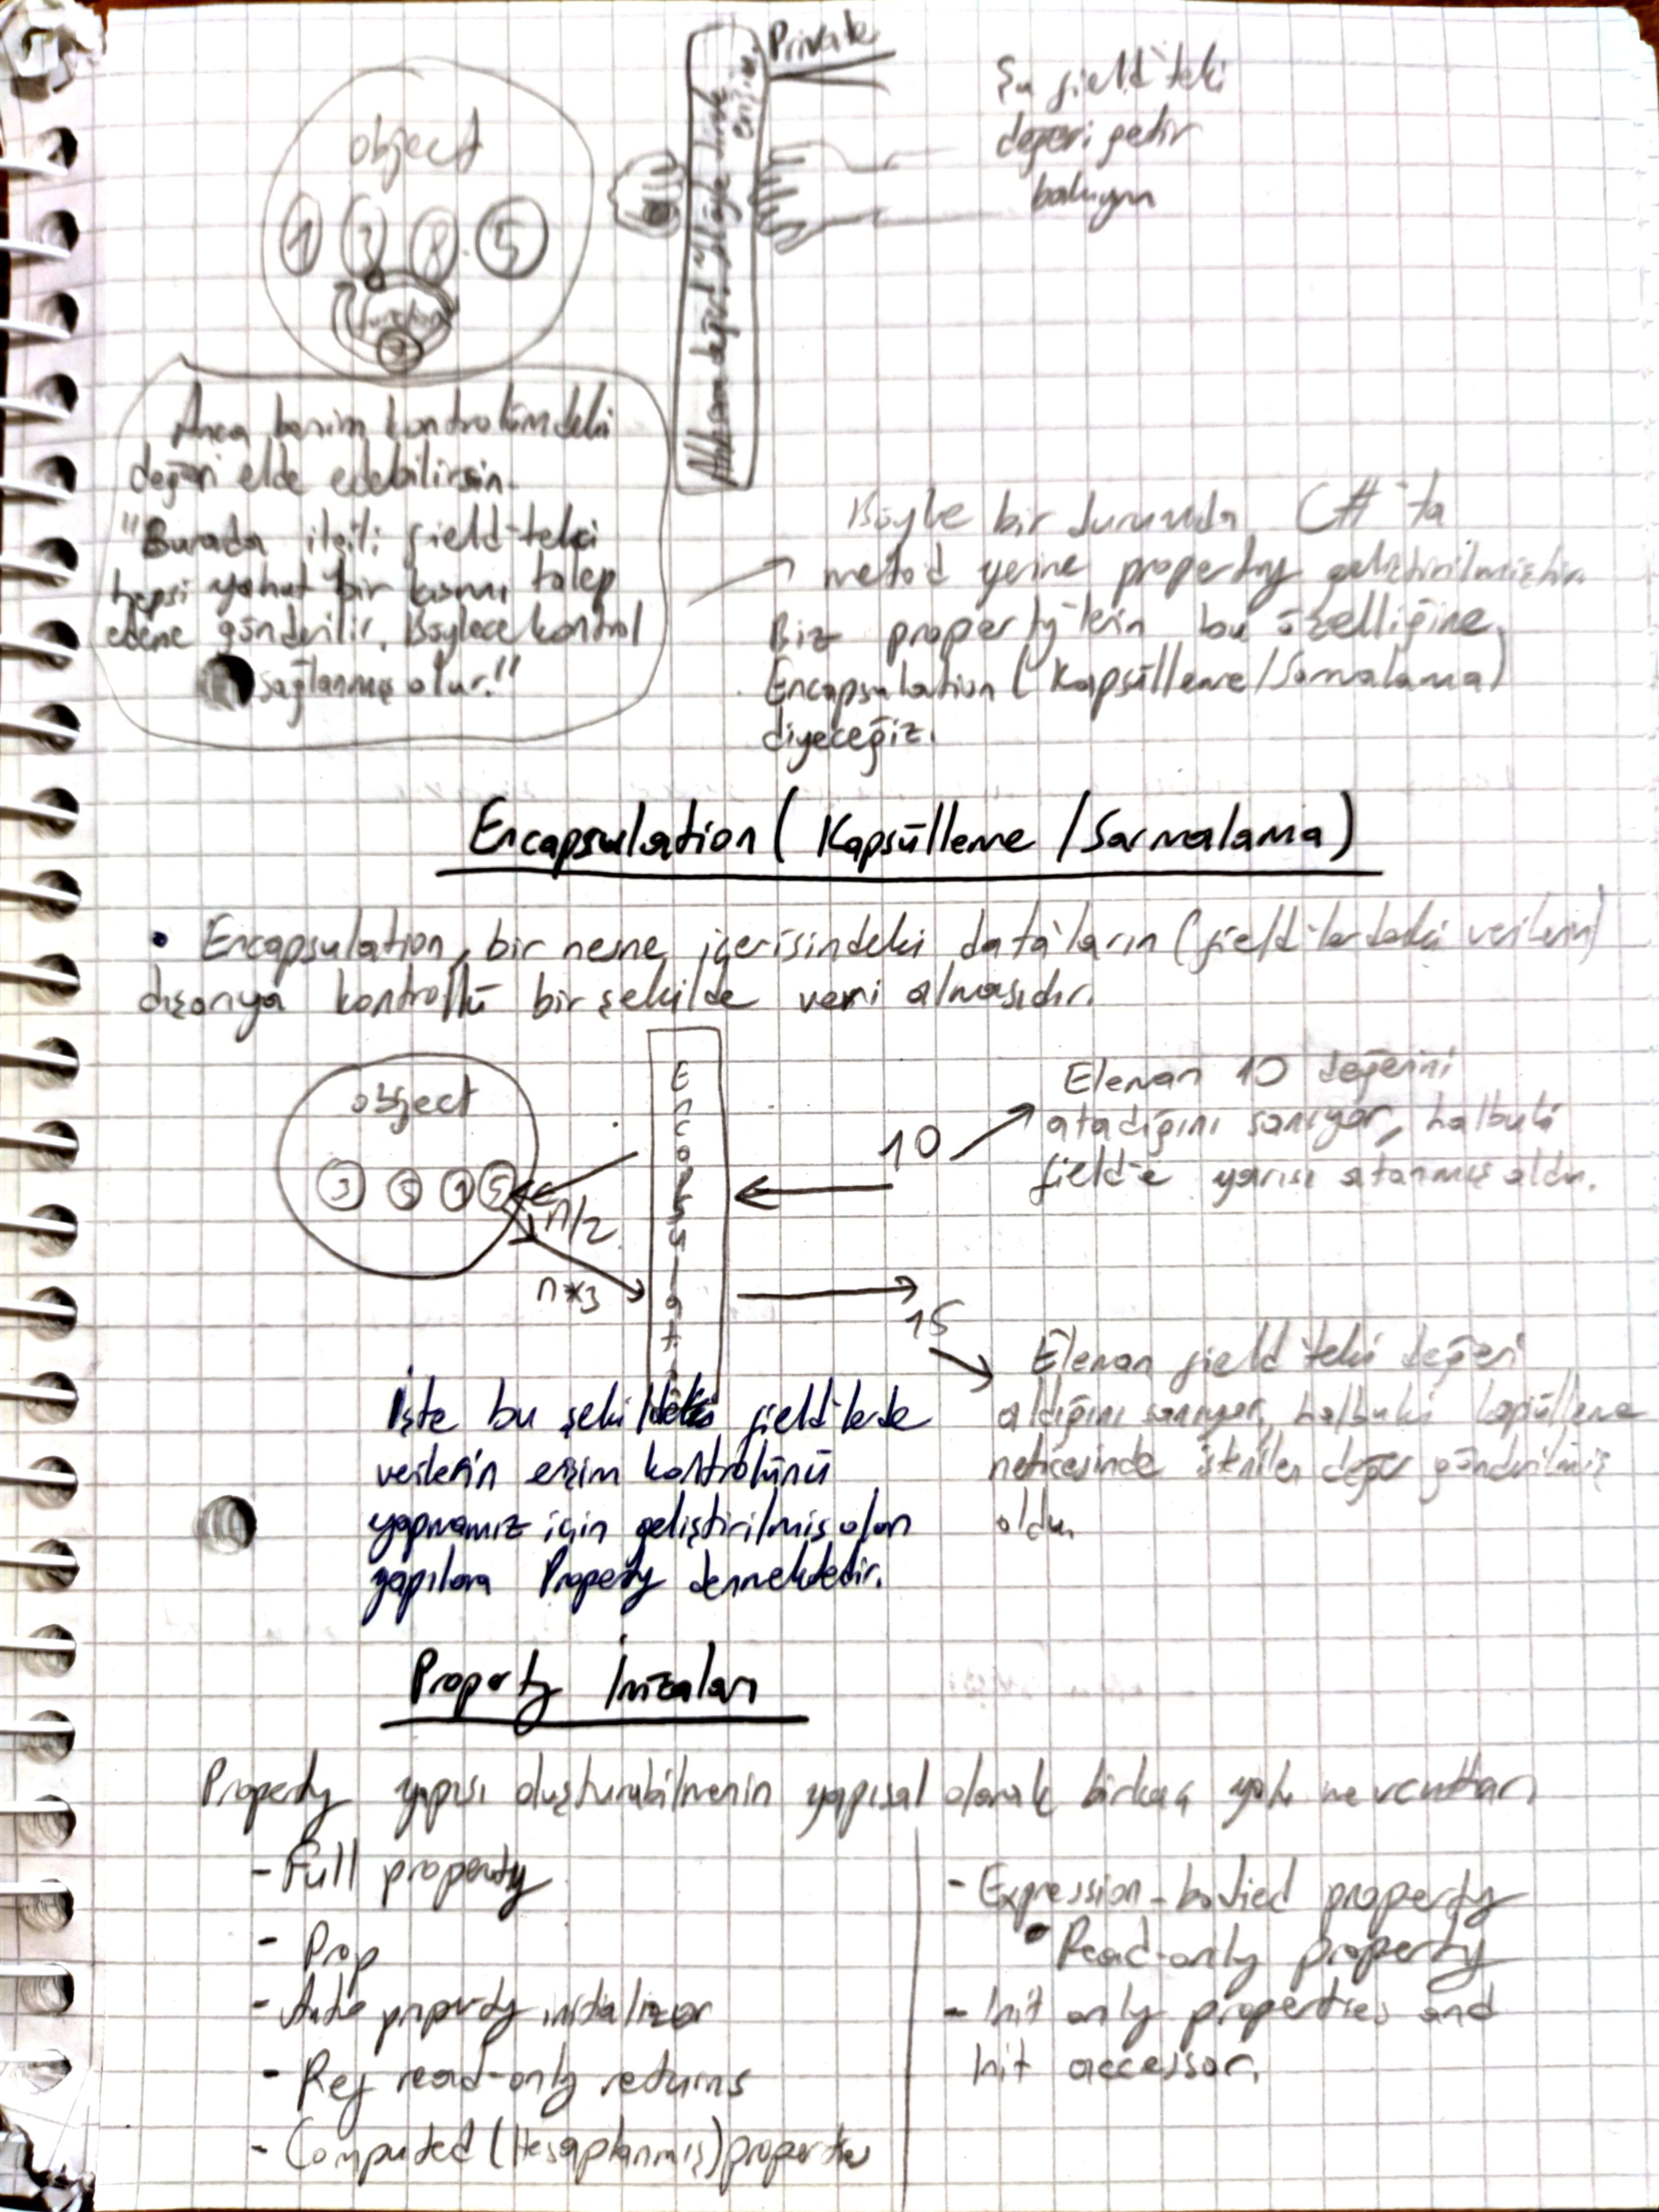 Private
Şu field'teki
değeri getir
bakayım
object
1 3 8 5
function
değil! Yok öyle direk
erişim.
Anca benim kontrolümdeki
değeri elde edebilirsin.
"Burada ilgili field'teki
hepsi yahut bir kısmı talep
edene gönderilir. Böylece kontrol
sağlanmış olur."
Böyle bir durumda C#'ta
metod yerine property geliştirilmiştir.
Biz property'lerin bu özelliğine
Encapsulation (Kapsülleme/Sarmalama)
diyeceğiz.
Encapsulation (Kapsülleme/Sarmalama)
• Encapsulation, bir nesne içerisindeki data'ların (field'lerdeki verilerin)
dışarıya kontrollü bir şekilde veri almasıdır.
object
3 8 1 5
n/2
n*3
Encapsulat
10
Eleman 10 değerini
atadığını sanıyor, halbuki
field'e yarısı atanmış oldu.
15
Eleman field'teki değeri
aldığını sanıyor, halbuki kapsülleme
neticesinde istenilen değer gönderilmiş
oldu.
İşte bu şekildeki field'lerde
verilerin erişim kontrolünü
yapmamız için geliştirilmiş olan
yapılara Property denmektedir.
Property İmzaları
Property yapısı oluşturabilmenin yapısal olarak birkaç yolu mevcuttur.
- Full property
- Prop
- Auto property initalizer
- Ref read-only returns
- Computed (Hesaplanmış) properties
- Expression-bodied property
• Read-only property
- Init only properties and
Init accessor.